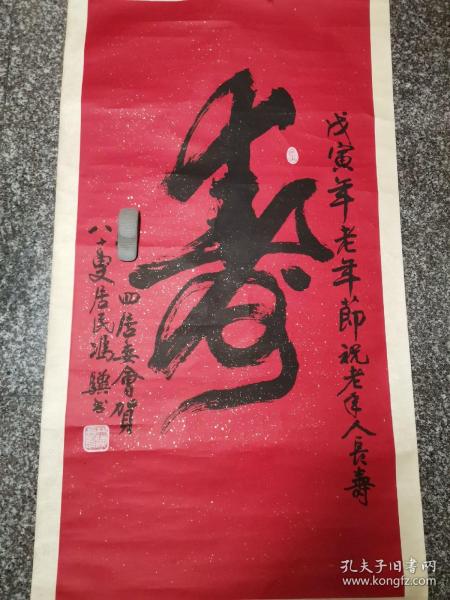 戊寅年老年節祝老年人長壽
壽
四居委會賀
八十叟居民馮驥書
孔夫子旧书网
www.kongfz.com